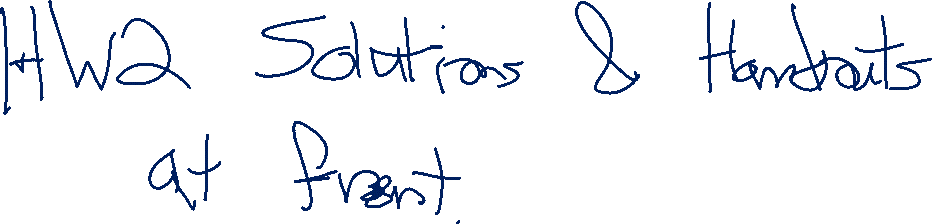 HW2 Solutions & Handouts
at front.